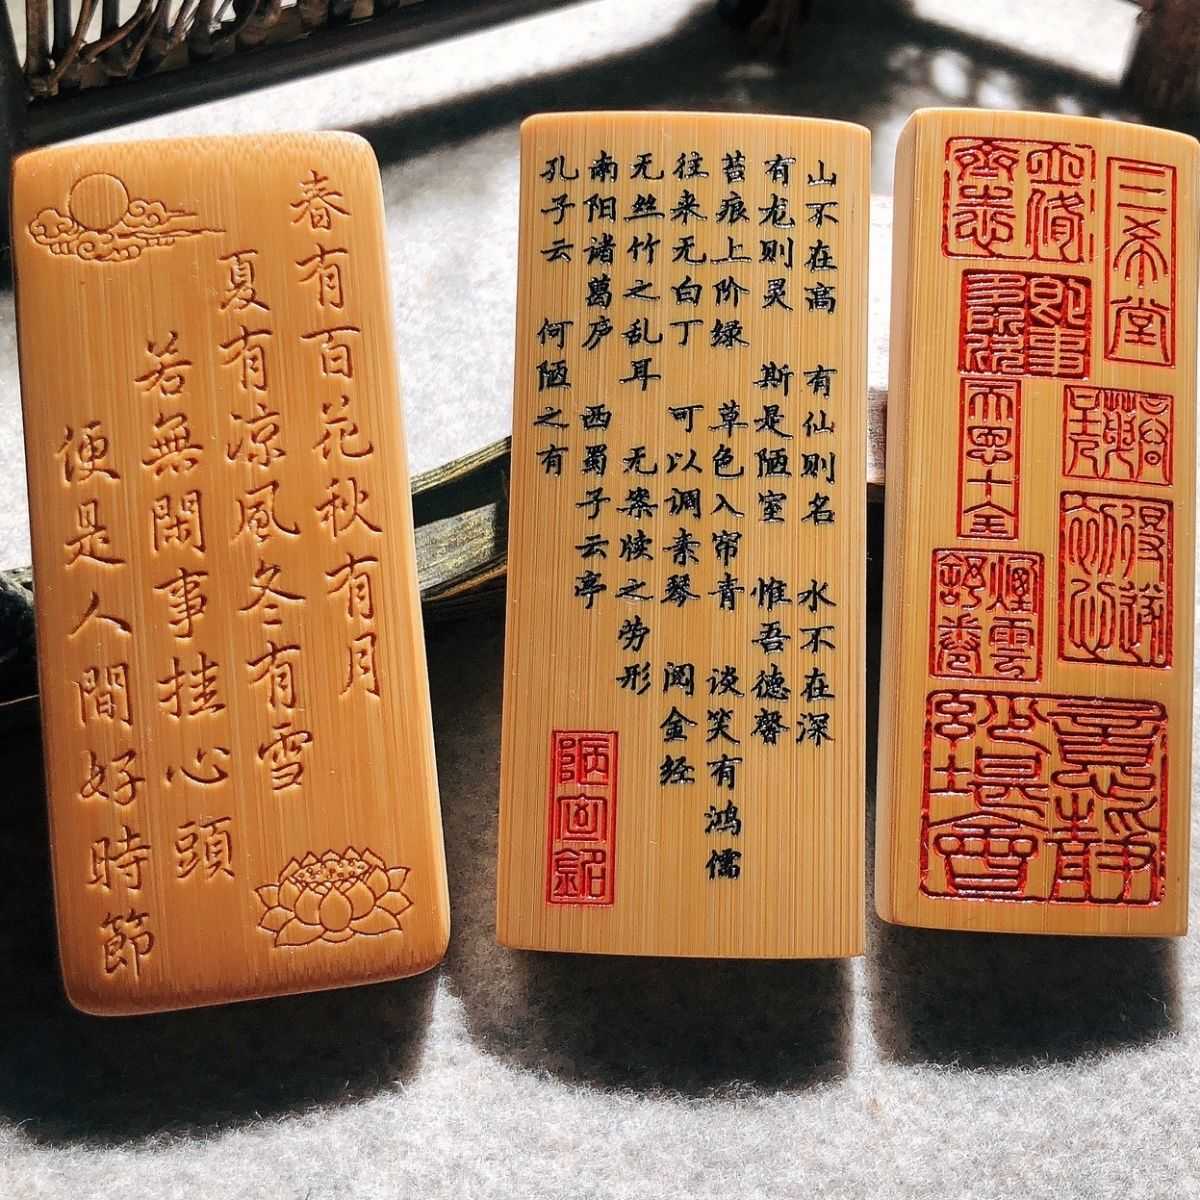 春有百花秋有月
夏有凉風冬有雪
若無閑事挂心頭
便是人間好時節
山不在高 有仙则名 水不在深
有龙则灵 斯是陋室 惟吾德馨
苔痕上阶绿 草色入帘青 谈笑有鸿儒
往来无白丁 可以调素琴 阅金经
无丝竹之乱耳 无案牍之劳形
南阳诸葛庐 西蜀子云亭
孔子云 何陋之有
陋室銘
三希堂
即事多所欣
天恩十全
煙雲舒卷
意静妙堪會